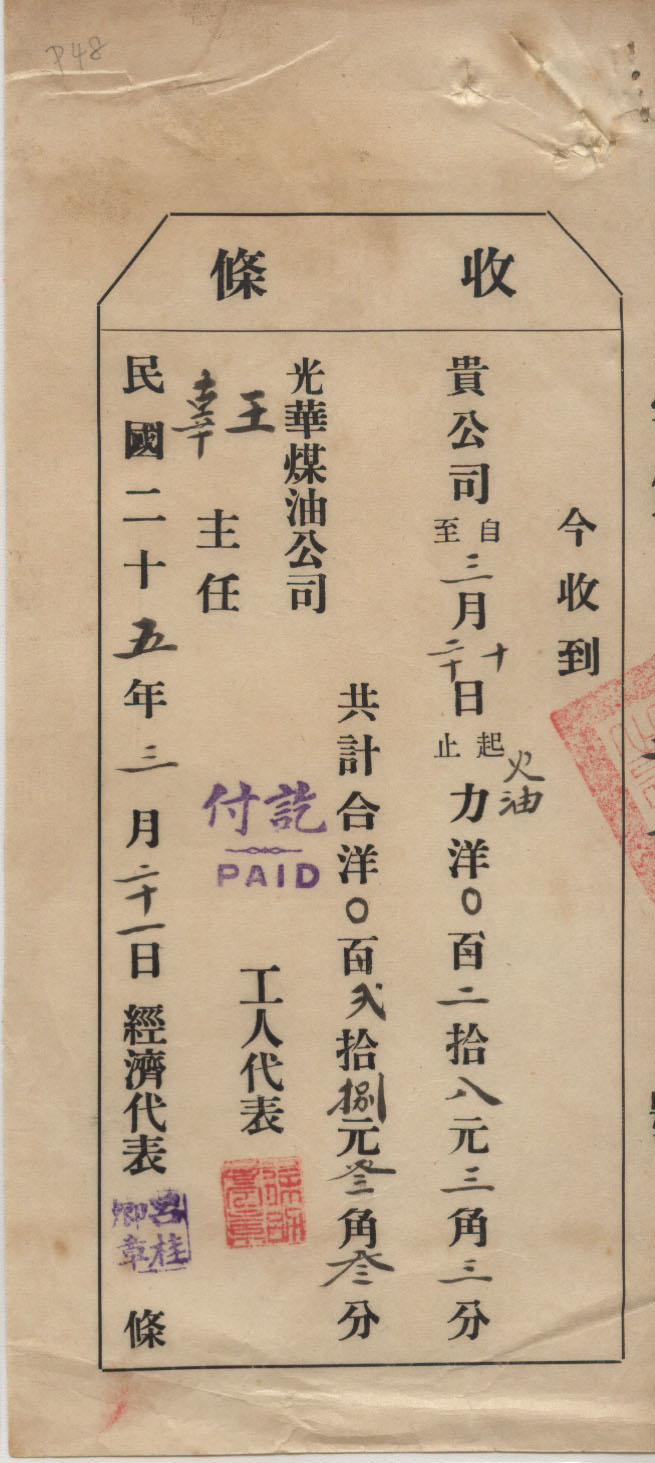 P48
收條
今收到
貴公司自三月十日起
至二十止火油力洋〇百二拾八元三角三分
共計合洋〇百弍拾捌元叄角叁分
光華煤油公司
王
主任
訖付
PAID
工人代表
民國二十五年三月二十一日經濟代表呂桂卿章條